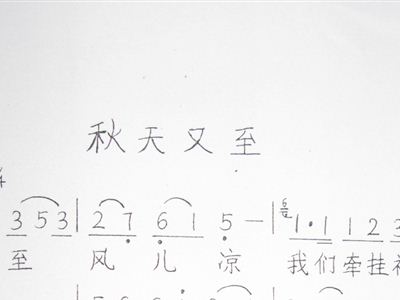 秋天又至
3 5 3 | 2 7 6 1 5 — | 1 · 1 1 2 3
至 风 儿 凉 我们牵挂